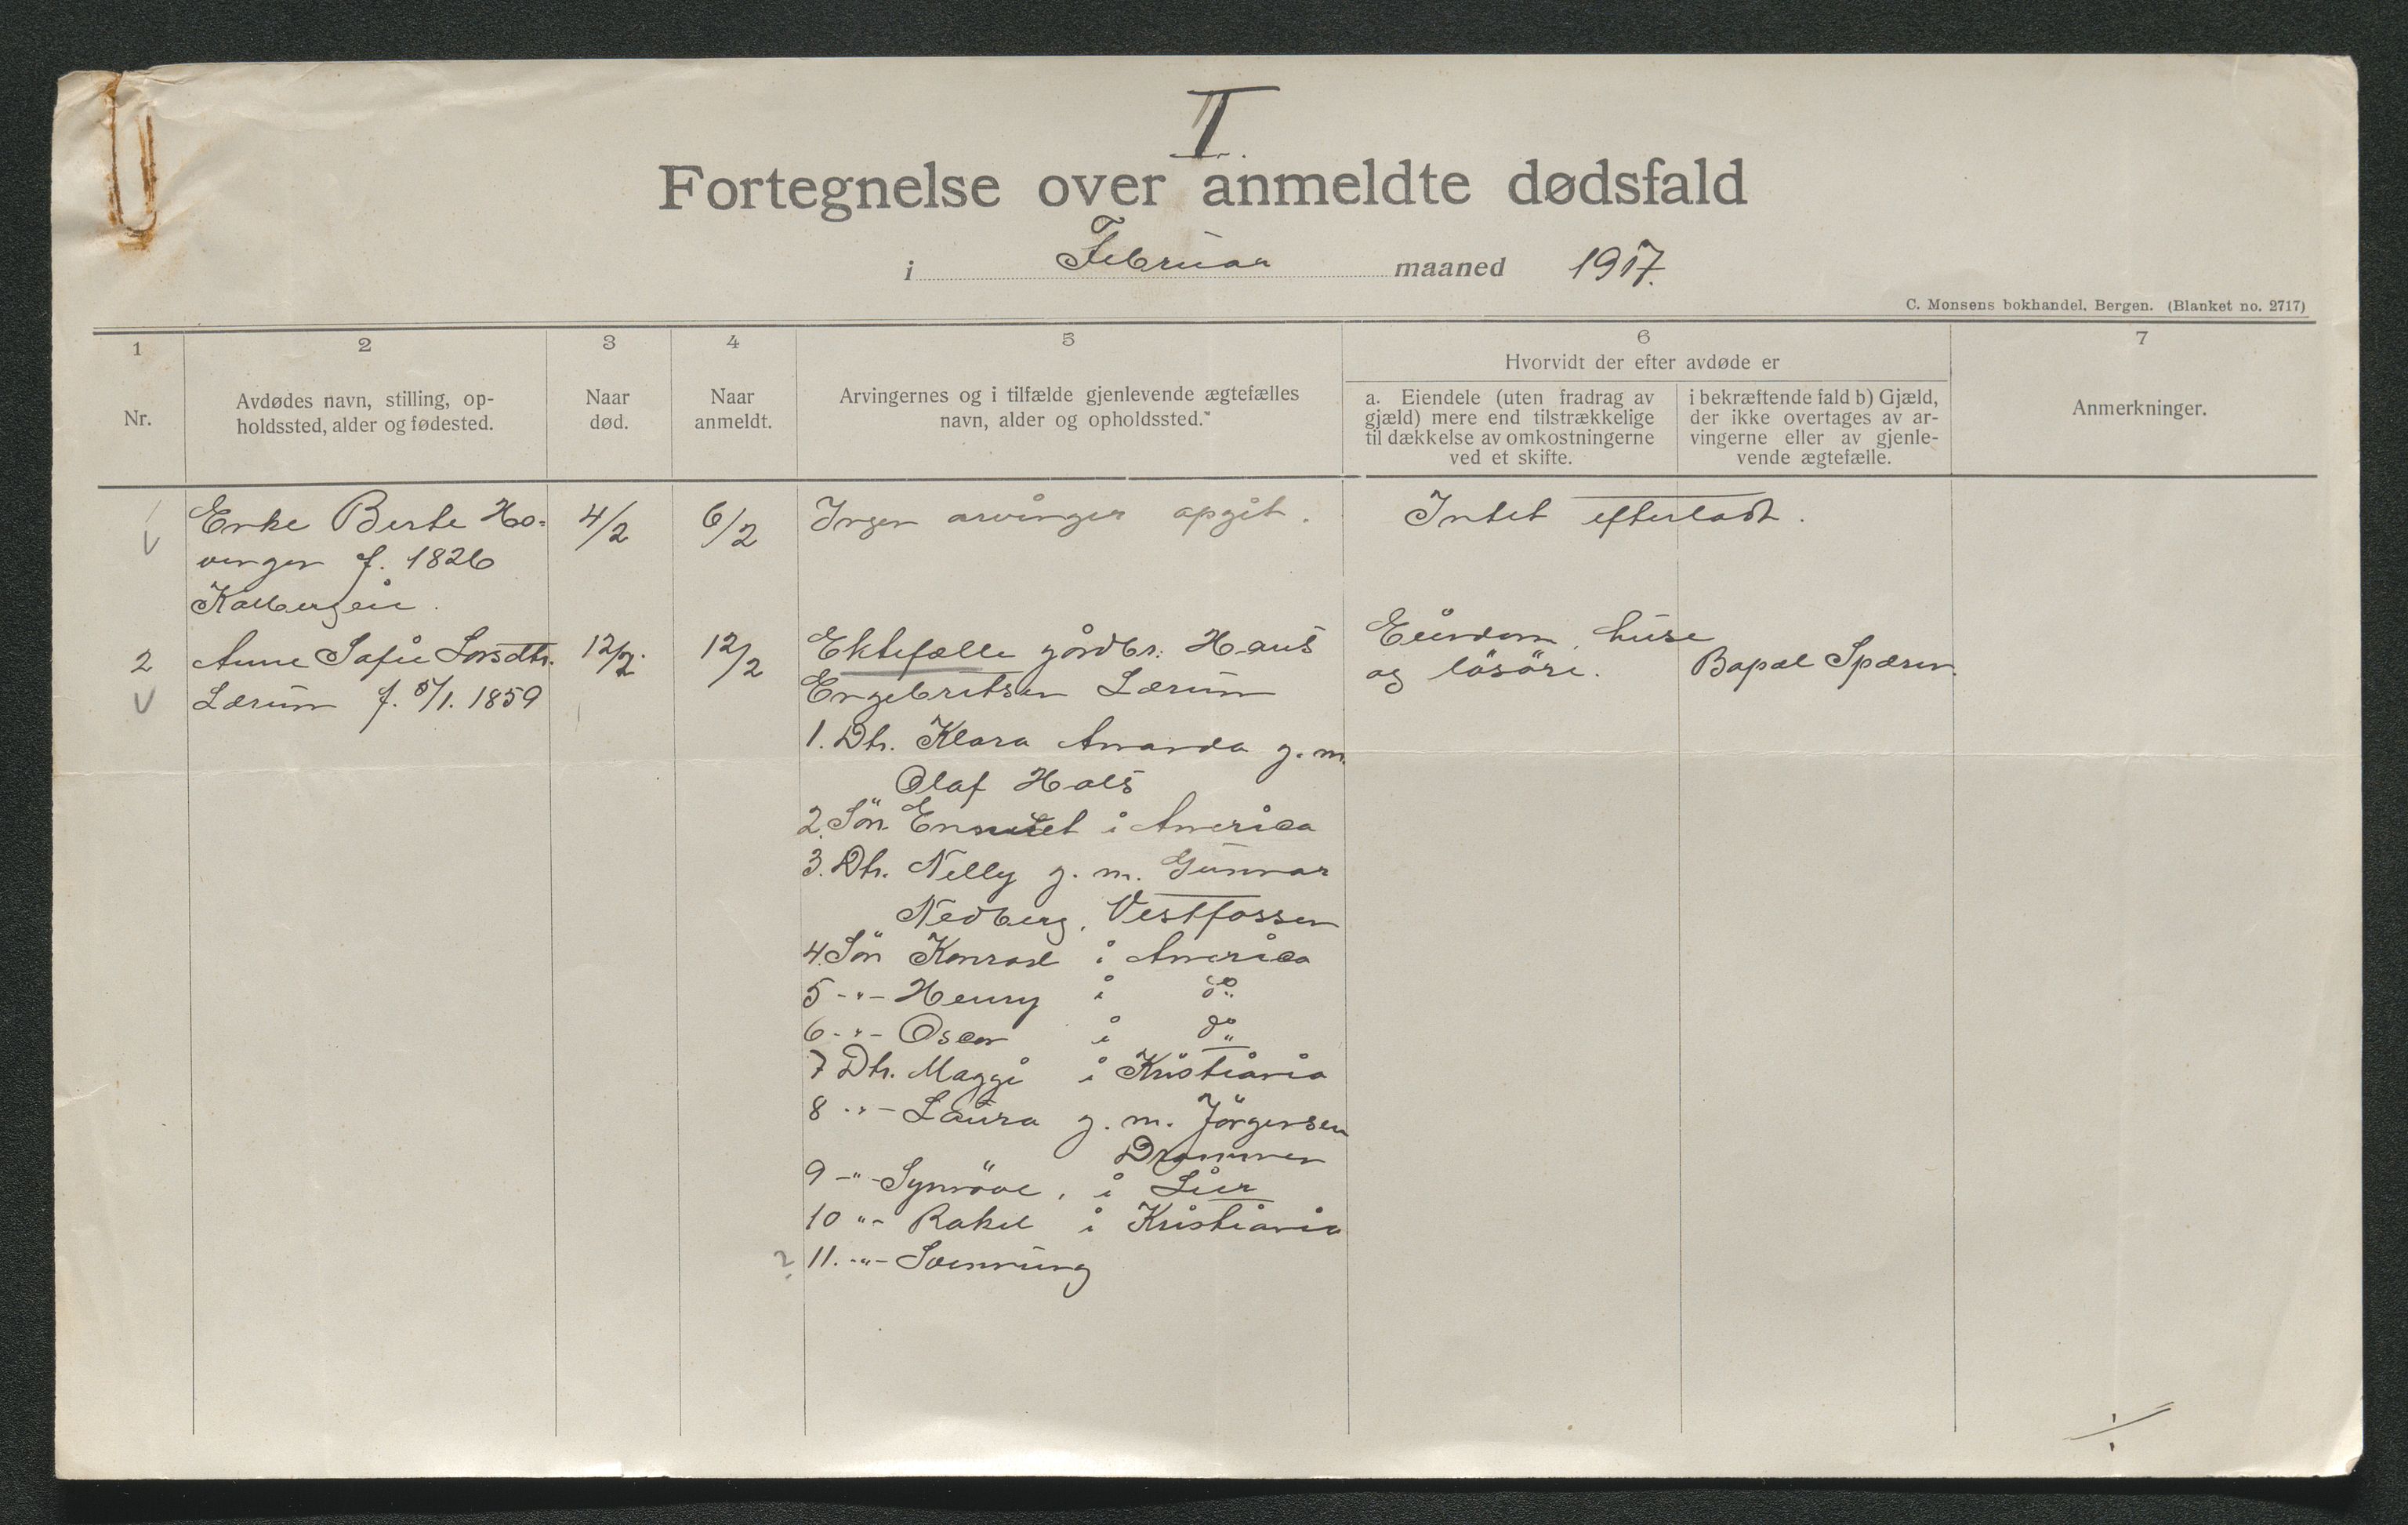 II.
Fortegnelse over anmeldte dødsfald
i Februar maaned 1917.
C. Monsens bokhandel, Bergen. (Blanket no. 2717)
1
Nr.
2
Avdødes navn, stilling, op-
holdssted, alder og fødested.
3
Naar
død.
4
Naar
anmeldt.
5
Arvingernes og i tilfælde gjenlevende ægtefælles
navn, alder og opholdssted.
6
Hvorvidt der efter avdøde er
a. Eiendele (uten fradrag av
gjæld) mere end tilstrækkelige
til dækkelse av omkostningerne
ved et skifte.
i bekræftende fald b) Gjæld,
der ikke overtages av ar-
vingerne eller av gjenle-
vende ægtefælle.
7
Anmerkninger.
1
Enke Berte Ho-
vengen f. 1826
4/2
6/2
Ingen arvinger opgit.
Intet efterladt.
2
Anne Sofie Larsdtr.
Lærum f. 5/1. 1859
12/2.
12/2
Ektefælle gårdbr. Hans
Engebretsen Lærum
1. Dtr. Klara Amanda g. m.
Olaf Hals
2. Sön i America
3. Dtr. Nelly g. m. Gunnar
Nedberg, Vestfossen
4. Sön Konrad i America
5 -"- Henry i do
6 -"- Oscar i do
7 Dtr. Maggi i Kristiania
8 -"- Laura g. m. Jörgensen
Drammen
9 -"- Synnöve, i Lier
10 "- Rakel i Kristiania
? 11. -"-
Eiendom, huse
og lösöre.